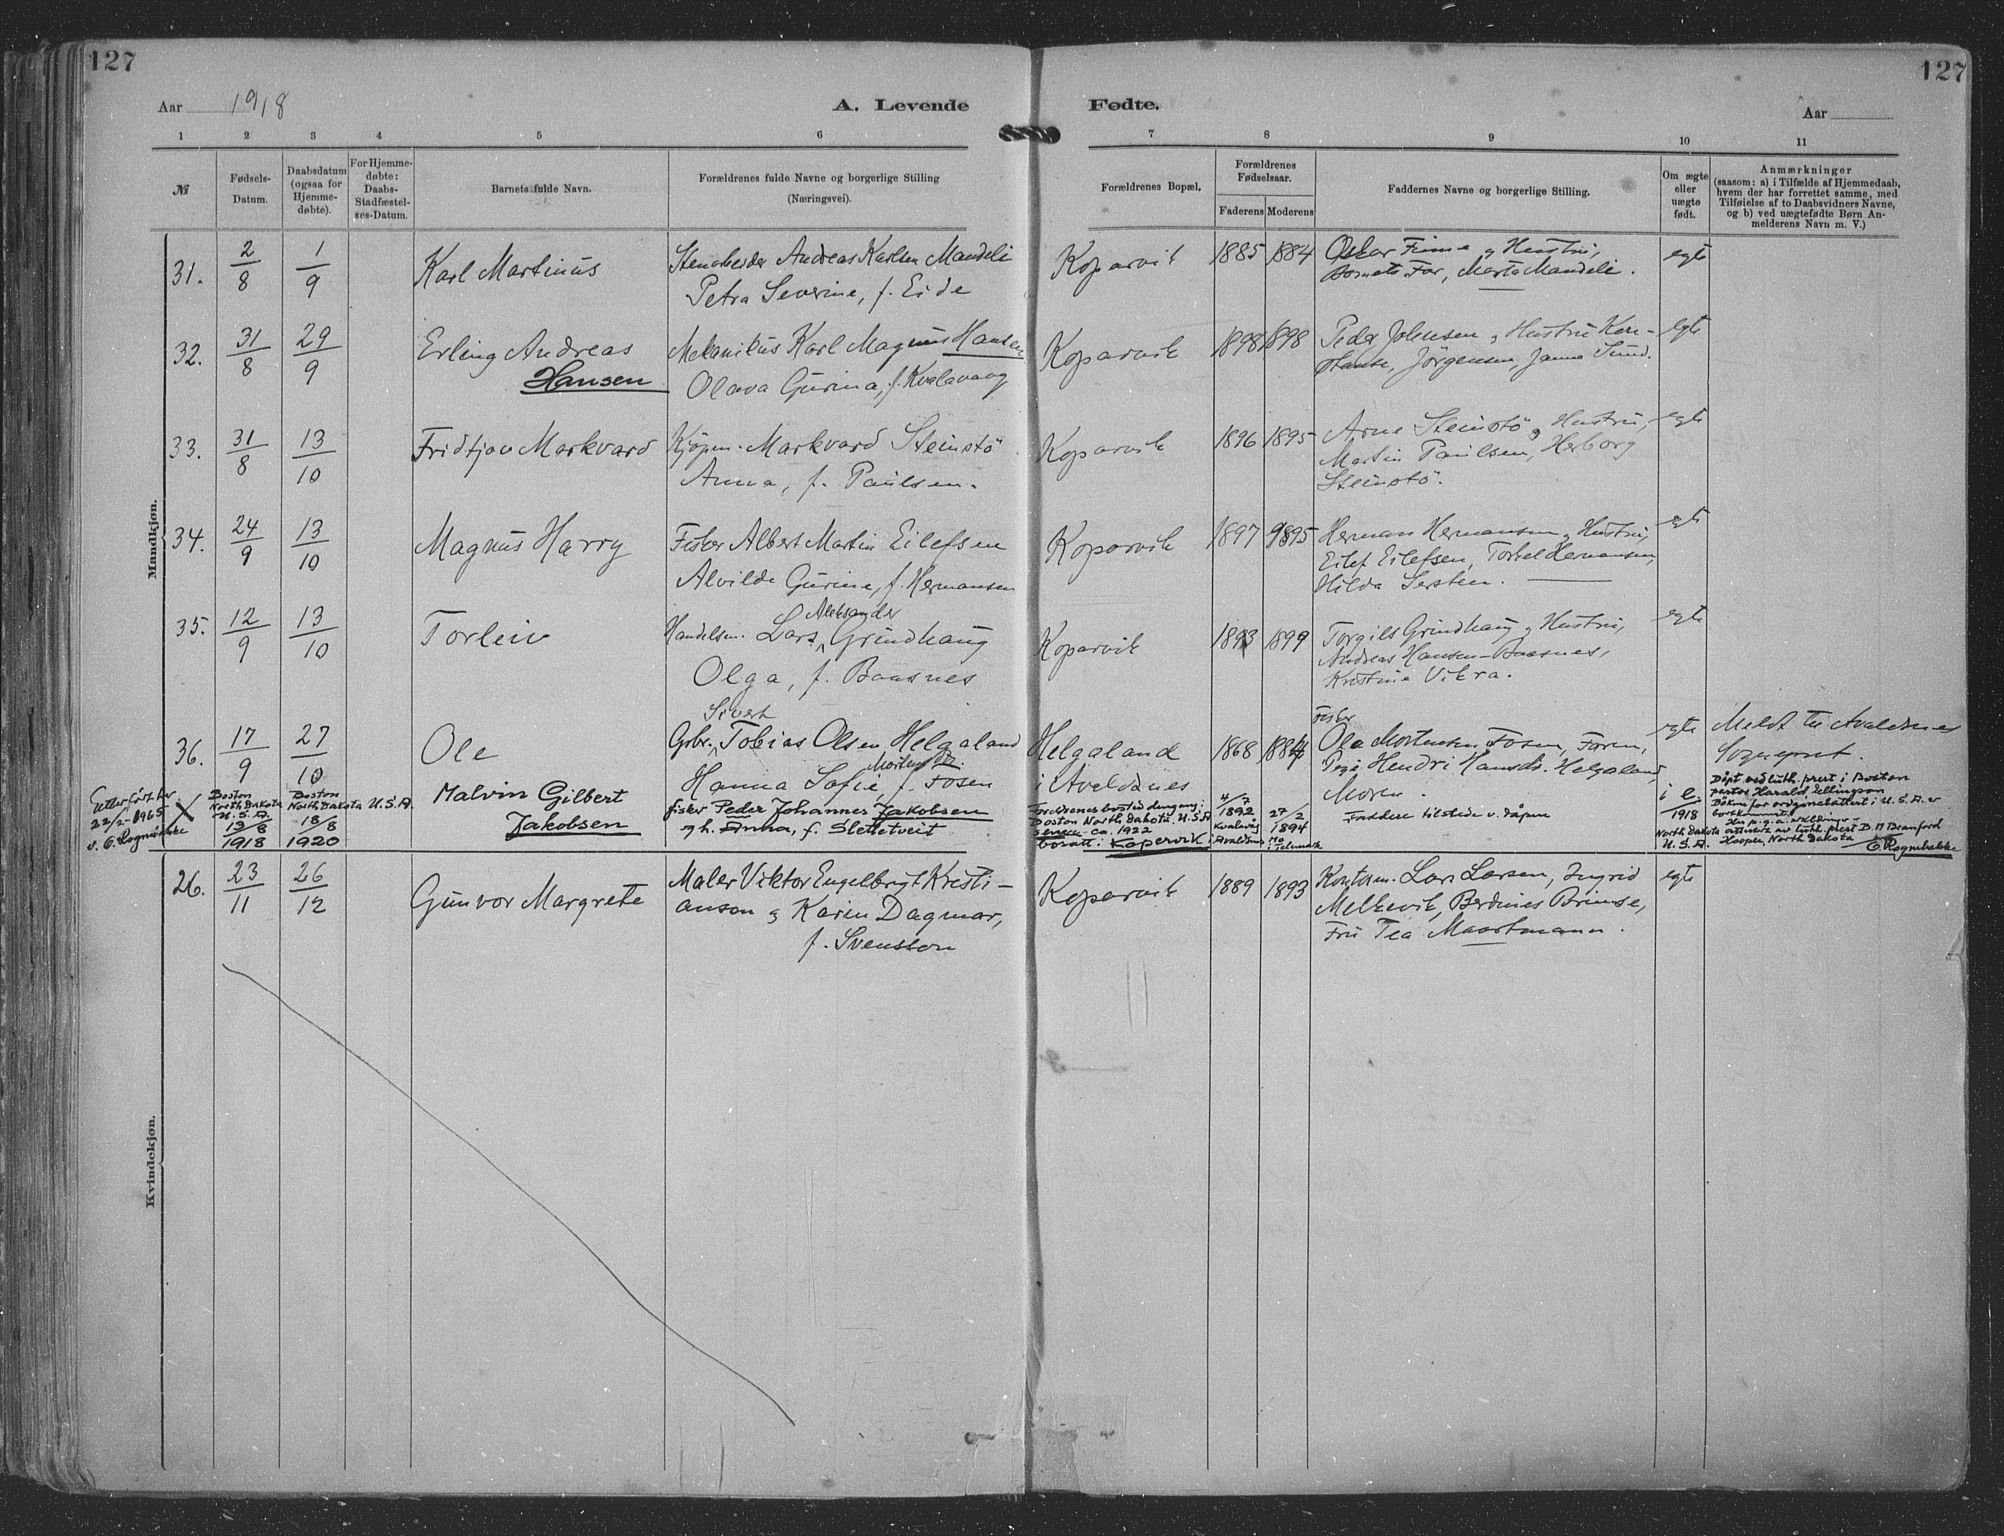 127
127
Aar 1918
A. Levende
Fødte.
Aar
1 2 3 4 5 6 7 8 9 10 11
№
Fødsels-
Datum.
Daabsdatum
(ogsaa for
Hjemme-
døbte).
For Hjemme-
døbte:
Daabs-
Stadfæstel-
ses-Datum.
Barnets fulde Navn.
Forældrenes fulde Navne og borgerlige Stilling
(Næringsvei).
Forældrenes Bopæl.
Forældrenes
Fødselsaar.
Faderens Moderens
Faddernes Navne og borgerlige Stilling.
Om ægte
eller
uægte
født.
Anmærkninger
(saasom: a) i Tilfælde af Hjemmedaab,
hvem der har forrettet samme, med
Tilføielse af to Daabsvidners Navne,
og b) ved uægtefødte Børn An-
melderens Navn m. V.)
Mandkjøn.
31. 2/8 1/9 Karl Martinus
Andreas Karlsen Mandeli
Petra Severine, f. Eide
Koparvik 1885 1884
Oskar Finne og Hustru,
Barnets Far, Marta Mandeli.
egte
32. 31/8 29/9 Erling Andreas
Hansen
Mekanikus Karl Magnus Hansen
Olava Gurina, f. Kvalavaag
Koparvik 1898 1898
Peder Johnsen og Hustru Kon-
stanse, Jörgensen, Janna Sund.
egte
33. 31/8 13/10 Fridtjov Markvard
Kjøpm. Markvard Steinstö
Anna, f. Paulsen.
Koparvik 1896 1895
Arne Steinstö og Hustru,
Martin Paulsen, Herborg
Steinstö.
egte
34. 24/9 13/10 Magnus Harry
Fisker Albert Martin Eilefsen
Alvilde Gurine, f. Hermansen
Koparvik 1897 1895
Herman Hermansen og Hustru,
Eilef Eilefsen, Torkel Hermansen,
Hilda
egte
35. 12/9 13/10 Torleiv
Aleksander
Handelsm. Lars Grindhaug
Olga, f. Baasnes
Koparvik 1893 1899
Torgils Grindhaug og Hustru,
Andreas Hansen-Baasnes,
Kristine Vikra.
egte
36. 17/9 27/10 Ole
Sivert
Gbr. Tobias Olsen Helgaland
Hanna Sofie f. Fosen
Helgaland
i Avaldsnes
1868 1884
Fisker
Ole Mortensen Fosen, Faren,
Hendri Hansdr. Helgaland
Moren.
egte
Meldt til Avaldsnes
Sogneprest.
Etterført her
22/2-1965
v. C. Rognebakke
X
Boston
North Dakota
U.S.A.
13/8
1918
Boston
North Dakota U.S.A.
18/8
1920
Malvin Gilbert
Jakobsen
fisker Peder Johannes Jakobsen
og h. Anna, f. Slettetveit
Foreldrenes bosted dengang:
Boston North Dakota, U.S.A.
senere ca. 1922
bosatt i Kopervik
4/7
1892
Kvalavåg
i Avaldsnes
27/2
1894
Mo
i Telemark
Faddere tilstede v. dåpen
i e.
1918
North Dakota
U.S.A.
Døpt ved luth. prest i Boston
pastor Harald Ellingson
attestert av luth. prest B. M. Branford
Hooper, North Dakota
C. Rognebakke
Kvindekjøn.
26. 23/11 26/12 Gunvor Margrete
Maler Viktor Engelbrygt Kristi-
anson og Karin Dagmar,
f. Svensson
Koparvik 1889 1893
Kontorm. Lars Larsen, Ingrid
Melkevik, Berdines Brimse,
Fru Tea Maartmann.
egte